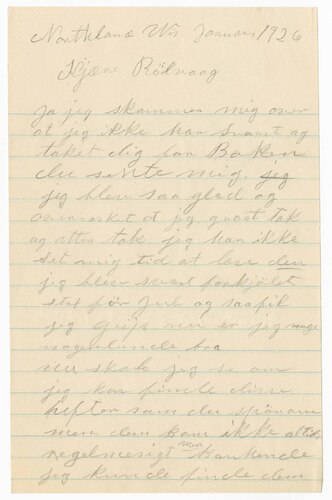 Northland Wis Januar 1926
Kjære Rölvaag
ja jeg skammer mig over
at jeg ikke har svaret og
taket dig for Boken
du sente mig, jeg
jeg blev saa glad og
overasket at jeg graat tak
og atter tak jeg har ikke
det mig tid at læse den
jeg blev svart forkjölet
strt før Jul og saa fik
jeg Grip nu er jeg
nogenlunde bra
nu skal jeg se om
jeg kan finde disse
hefter som du spör om
men dem kom ikke altid
regelmesigt men kankende
jeg kunde finde dem